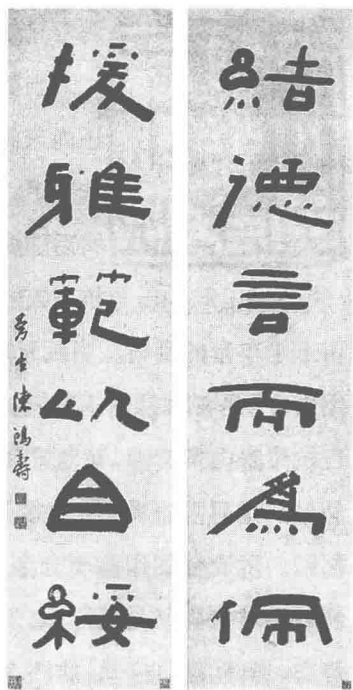 結德言而爲佩
援雅範以自綏
曼生陳鴻壽